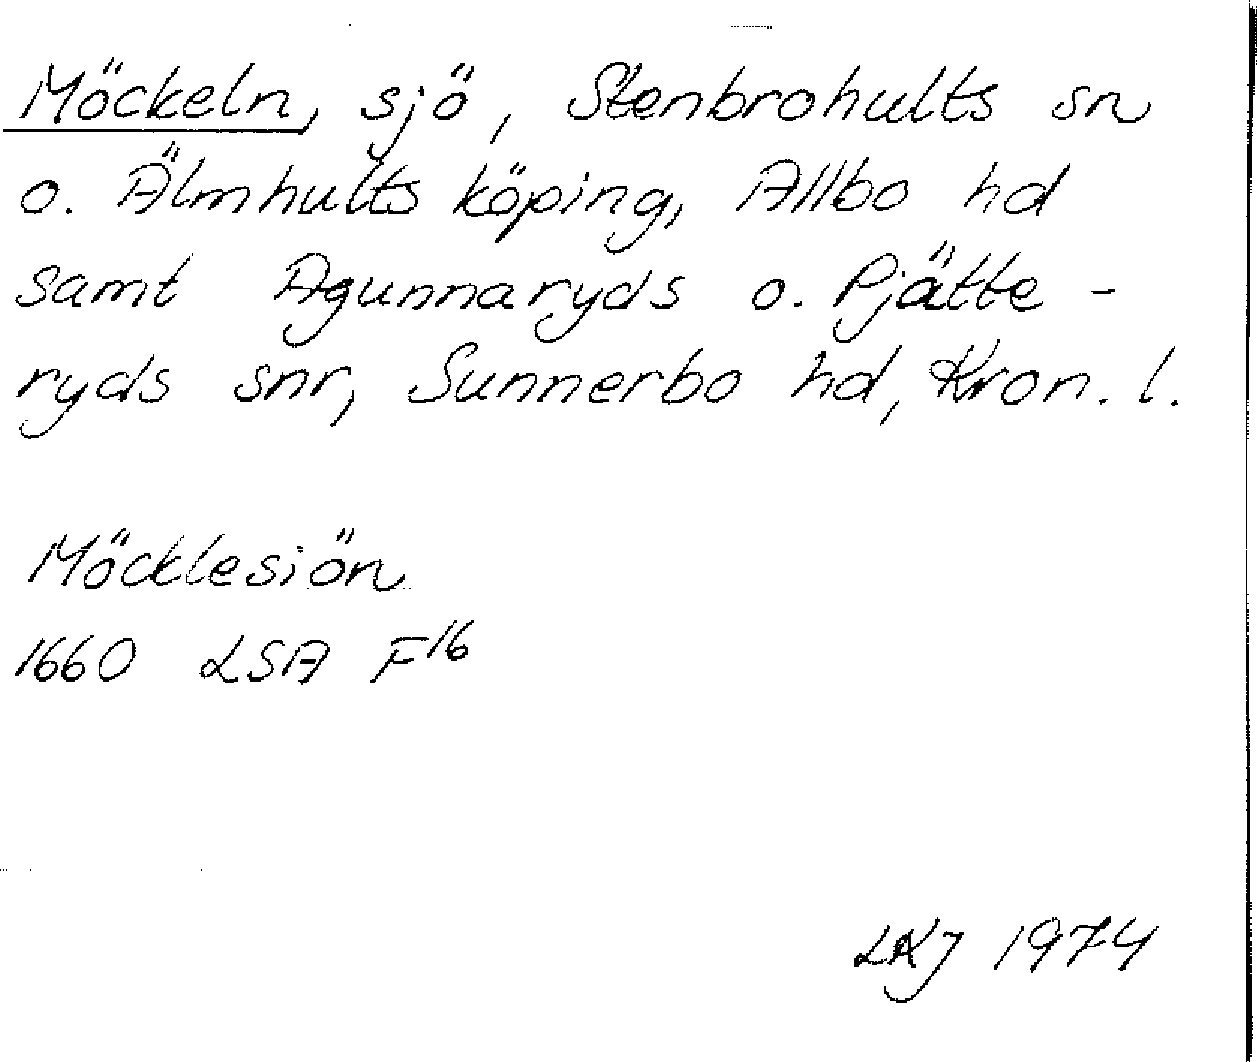 Möckeln, sjö, Stenbrohults sn
o. Älmhults köping, Allbo hd
samt Agunnaryds o. Pjätte-
ryds snr, Sunnerbo hd, Kron. l.
Möcklesiön
1660 LSA F16
1974